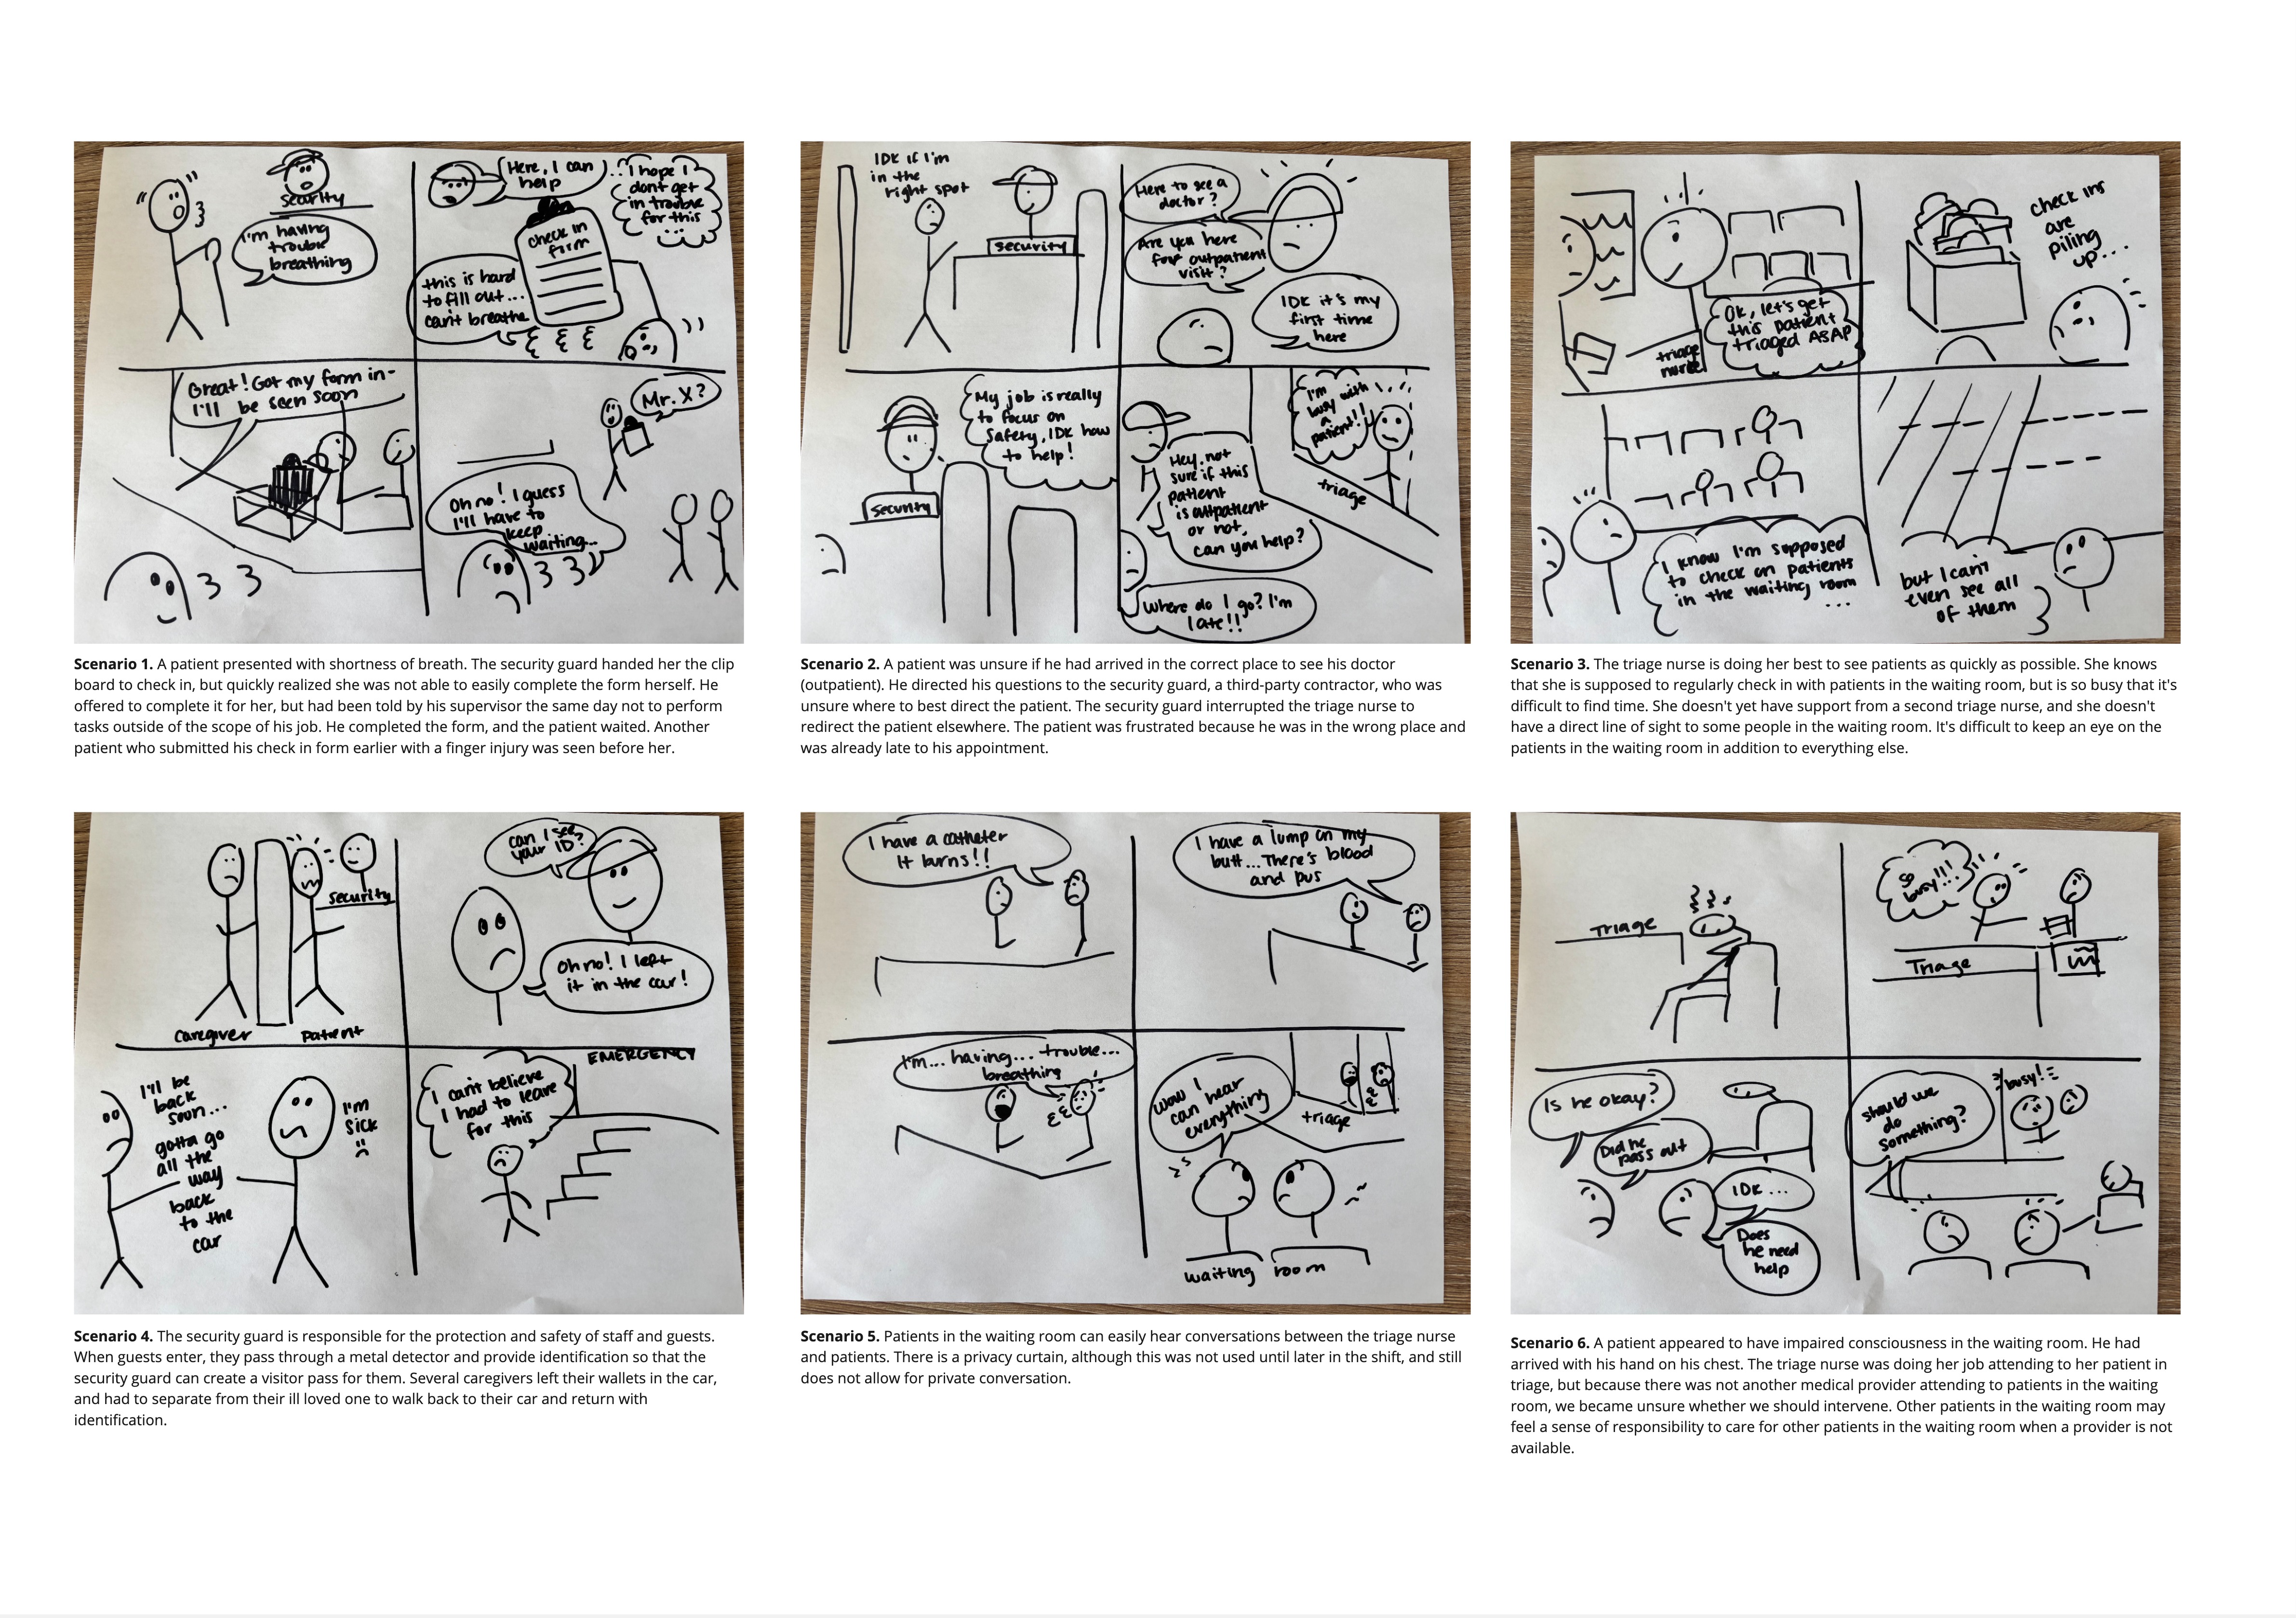 "I'm having
trouble
breathing
security
Here, I can
help
I hope I
dont get
in trouble
for this
...
check in
form
this is hard
to fill out...
can't breathe
Great! Got my form in-
I'll be seen soon
Mr. X?
Oh no! I guess
I'll have to
keep
waiting...
Scenario 1. A patient presented with shortness of breath. The security guard handed her the clip
board to check in, but quickly realized she was not able to easily complete the form herself. He
offered to complete it for her, but had been told by his supervisor the same day not to perform
tasks outside of the scope of his job. He completed the form, and the patient waited. Another
patient who submitted his check in form earlier with a finger injury was seen before her.
IDK if I'm
in the
right spot
security
Here to see a
doctor?
Are you here
for outpatient
visit?
IDK it's my
first time
here
My job is really
to focus on
safety, IDK how
to help!
security
I'm
busy with
a
patient!!
Hey, not
sure if this
patient
is outpatient
or not,
can you help?
triage
Where do I go? I'm
late!!
Scenario 2. A patient was unsure if he had arrived in the correct place to see his doctor
(outpatient). He directed his questions to the security guard, a third-party contractor, who was
unsure where to best direct the patient. The security guard interrupted the triage nurse to
redirect the patient elsewhere. The patient was frustrated because he was in the wrong place and
was already late to his appointment.
OK, let's get
this patient
triaged ASAP
triage
nurse
check ins
are
piling
up...
I know I'm supposed
to check on patients
in the waiting room
...
but I can't
even see all
of them
Scenario 3. The triage nurse is doing her best to see patients as quickly as possible. She knows
that she is supposed to regularly check in with patients in the waiting room, but is so busy that it's
difficult to find time. She doesn't yet have support from a second triage nurse, and she doesn't
have a direct line of sight to some people in the waiting room. It's difficult to keep an eye on the
patients in the waiting room in addition to everything else.
security
caregiver
patient
can I see
your ID?
Oh no! I left
it in the car!
I'll be
back
soon...
gotta go
all the
way
back
to the
car
I'm
sick
I can't believe
I had to leave
for this
EMERGENCY
Scenario 4. The security guard is responsible for the protection and safety of staff and guests.
When guests enter, they pass through a metal detector and provide identification so that the
security guard can create a visitor pass for them. Several caregivers left their wallets in the car,
and had to separate from their ill loved one to walk back to their car and return with
identification.
I have a catheter
It burns!!
I have a lump on my
butt...There's blood
and pus
I'm... having... trouble...
breathing
Wow I
can hear
everything
triage
waiting room
Scenario 5. Patients in the waiting room can easily hear conversations between the triage nurse
and patients. There is a privacy curtain, although this was not used until later in the shift, and still
does not allow for private conversation.
Triage
So
busy!!!
Triage
Is he okay?
Did he
pass out
IDK...
Does
he need
help
should we
do
something?
busy!
Scenario 6. A patient appeared to have impaired consciousness in the waiting room. He had
arrived with his hand on his chest. The triage nurse was doing her job attending to her patient in
triage, but because there was not another medical provider attending to patients in the waiting
room, we became unsure whether we should intervene. Other patients in the waiting room may
feel a sense of responsibility to care for other patients in the waiting room when a provider is not
available.